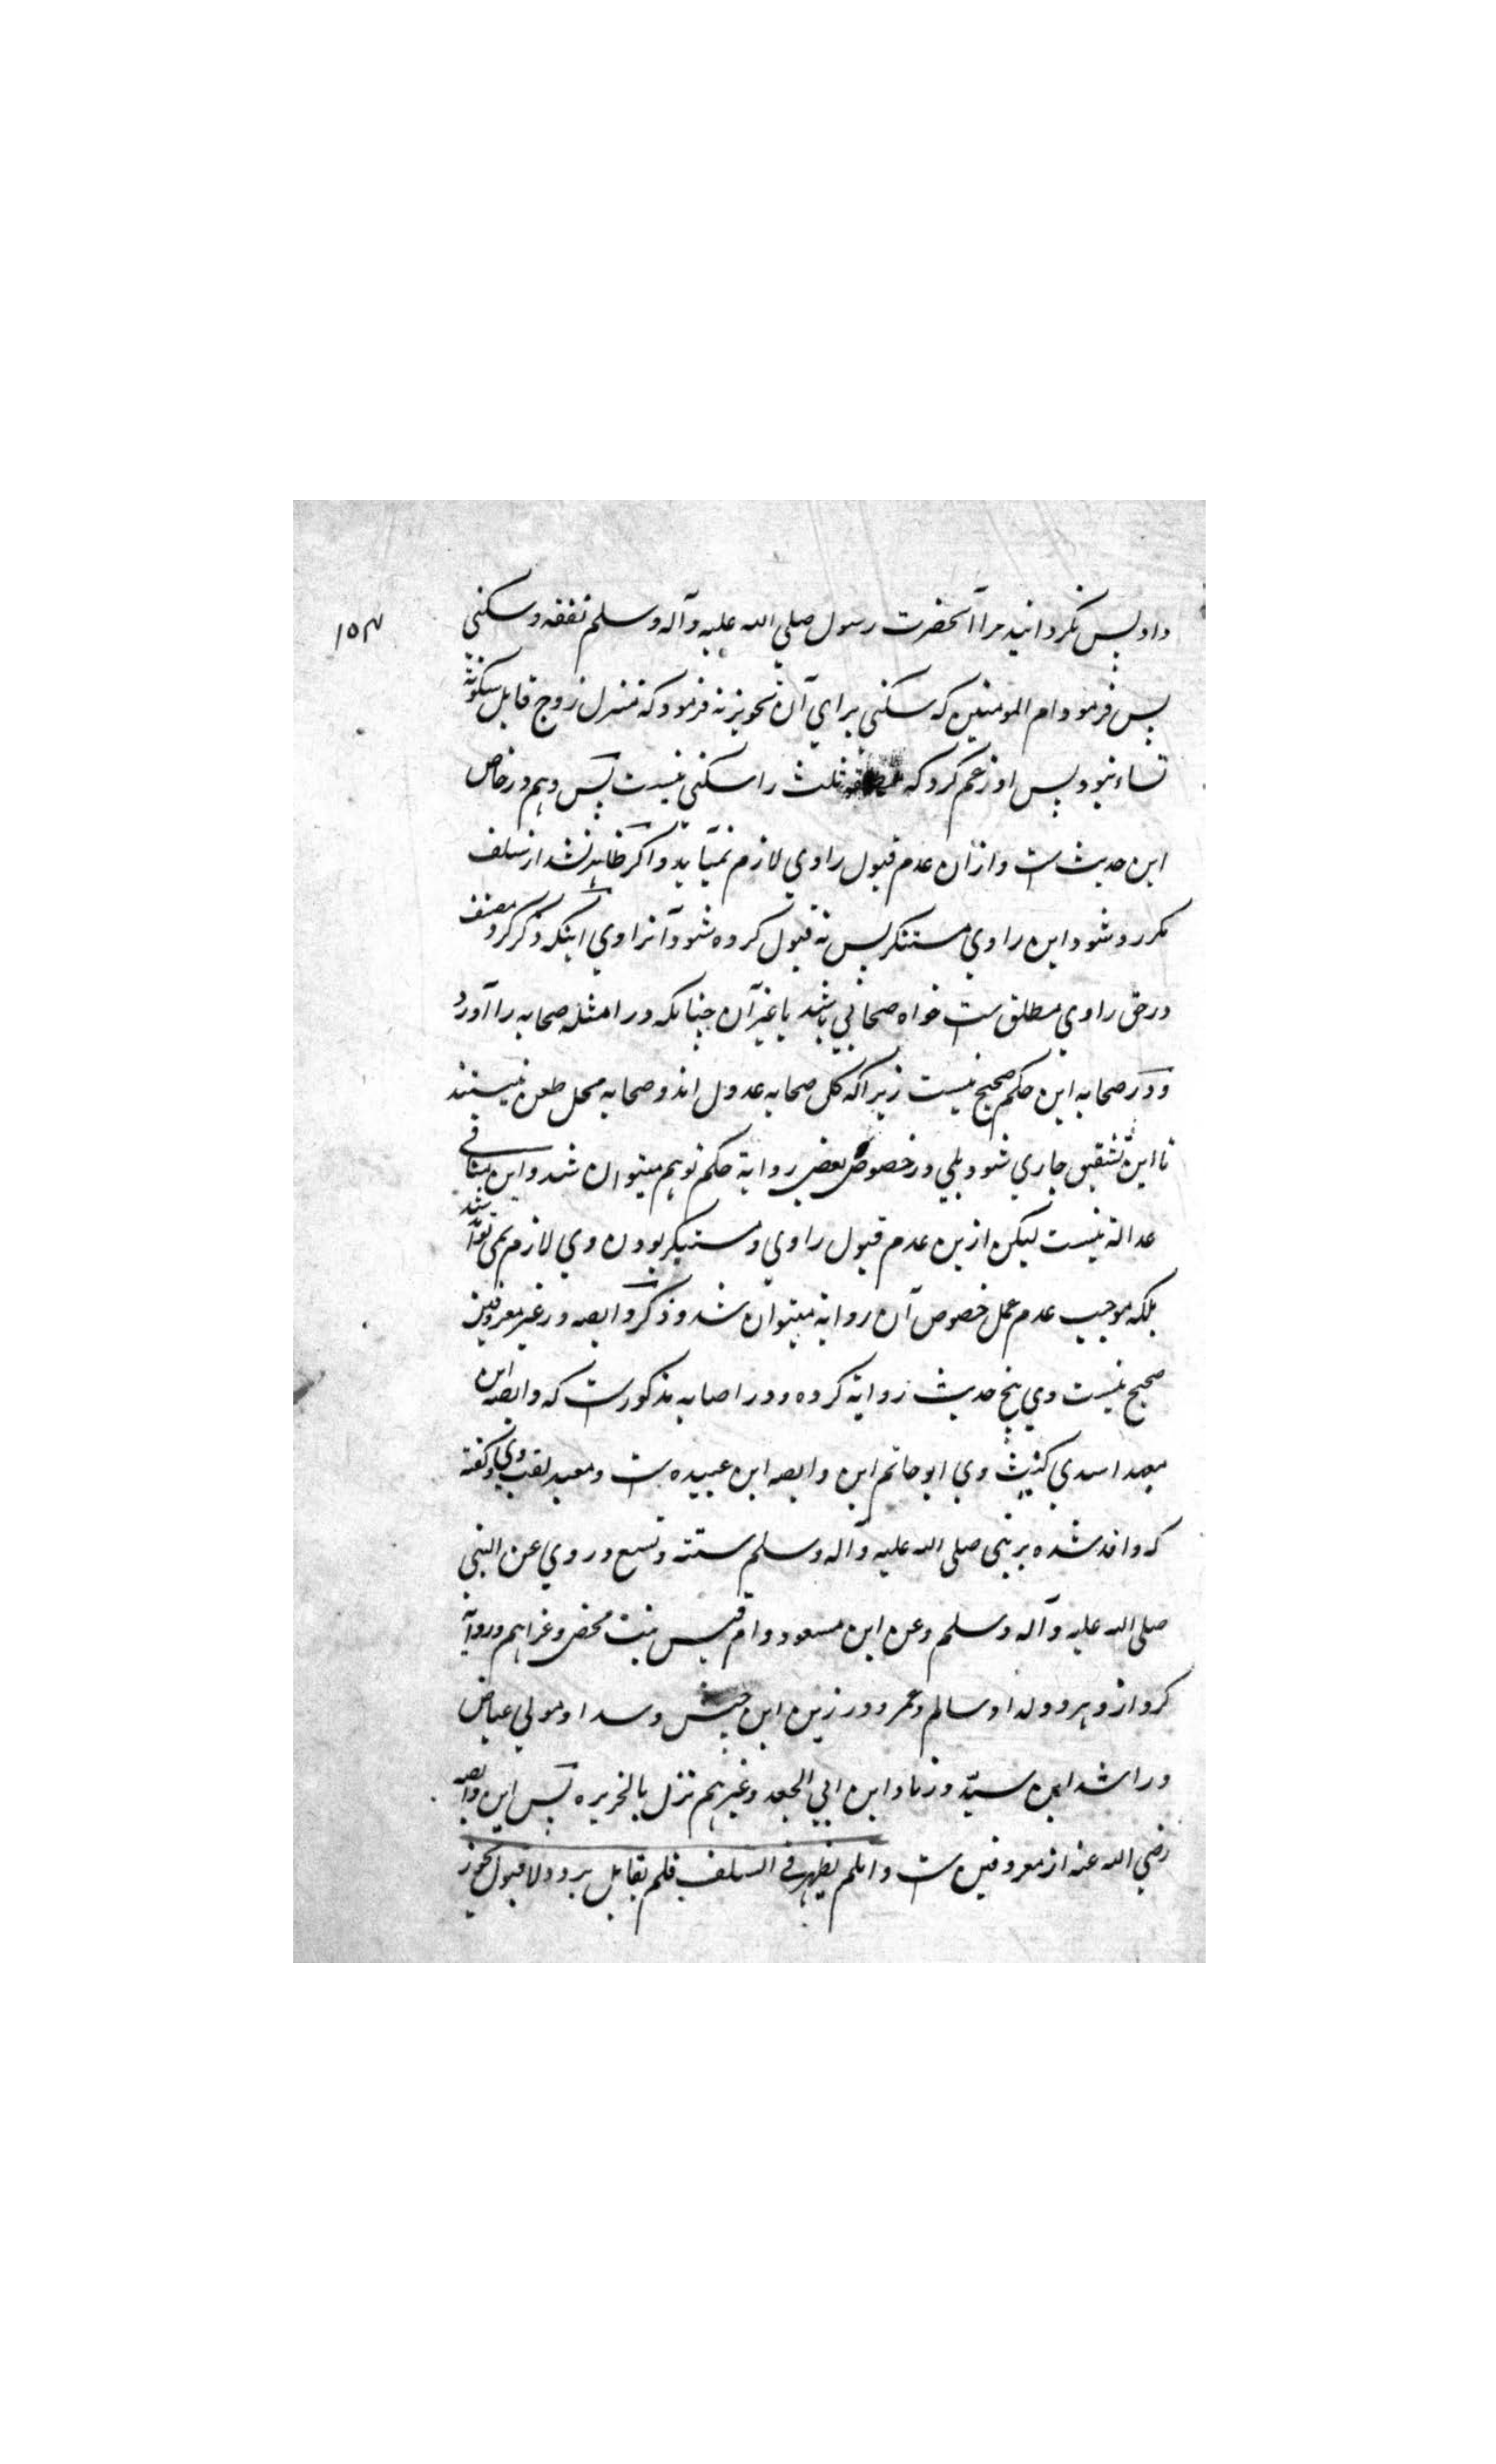 ۱۵۳
داد پس نگردانید مرا آنحضرت رسول صلي الله عليه وآله وسلم نفقه وسكني
پس فرمود ام المومنين كه سكني براي آن تجويز نه فرمود كه منزل زوج قابل سكونة
نساء نبود پس او زعم كرد كه ثلث را سكني نيست پس وهم در خاص
اين حديث ست وازان عدم قبول راوي لازم نمي آيد واكر ظاهر نشد از سلف
مكر رد شود اين راوي مستنكر پس نه قبول كرده شود آنراوي اينكه ذكر كرد مصنف
در حق راوي مطلق ست خواه صحابي باشد يا غير آن چنانكه در امثله صحابه را آورد
ودر صحابه اين حكم صحيح نيست زيراكه كل صحابه عدول اند وصحابه محل طعن نيستند
تا اين تشقيق جاري شود بلي در خصوص بعض رواية حكم توهم ميتوان شد واين منافي
عدالة نيست ليكن ازين عدم قبول راوي ومستنكر بودن وي لازم نمي تواند شد
بلكه موجب عدم عمل خصوص آن رواية ميتوان شد وذكر وابصه در غير معروفين
صحيح نيست وي پنج حديث رواية كرده ودر اصابه مذكورست كه وابصه ابن
معبد اسدي كنيت وي ابو حاتم ابن وابصه ابن عبيده ست ومعبد لقب وي وكفته
كه وافد شده بر نبي صلى الله عليه وآله وسلم سنة تسع وروي عن النبي
صلى الله عليه وآله وسلم وعن ابن مسعود وام قيس بنت محصن وغيرهم ورواية
كرد از و هر دو ولد او سالم وعمر وزر ابن حبيش وسداد مولي عياض
وراشد ابن سيد وزياد ابن ابي الجعد وغيرهم نزل بالجزيره پس اين وابصه
رضي الله عنه از معروفين ست وان لم يظهر في السلف فلم يقابل برد ولا قبول يجوز